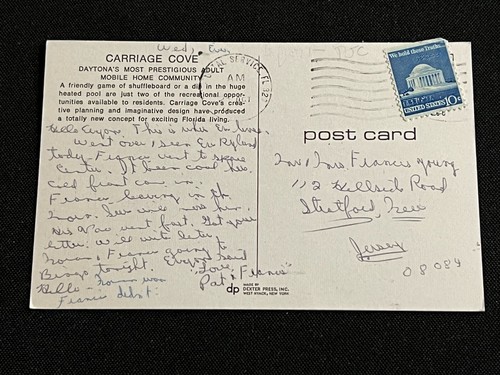 Wed, Eve,
CARRIAGE COVE
DAYTONA'S MOST PRESTIGIOUS ADULT
MOBILE HOME COMMUNITY
A friendly game of shuffleboard or a dip in the huge
heated pool are just two of the recreational oppor-
tunities available to residents. Carriage Cove's crea-
tive planning and imaginative design have produced
a totally new concept for exciting Florida living.
POSTAL SERVICE, FL 32
AM
We hold these Truths...
UNITED STATES 10c
post card
This is where Ev. lives.
Went over, seen Ev. Ryland
today. Francis went to space
Center. It been cool here.
Cold front came in.
Francis leaving in the
Morn.
went fast. Got your
letter. Will write later.
Francis going to
Bingo tonight.
Hello -
Francis didn't.
"Love,
Pat & Francis"
Mr/Mrs Francis Young
112 Hillside Road
Stratford, New
Jersey
08084
dp
MADE BY
DEXTER PRESS, INC.
WEST NYACK, NEW YORK